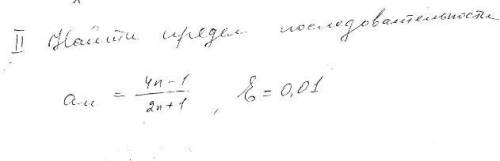 II Найти предел последовательности
aₙ = (4n-1)/(2n+1), ε = 0,01